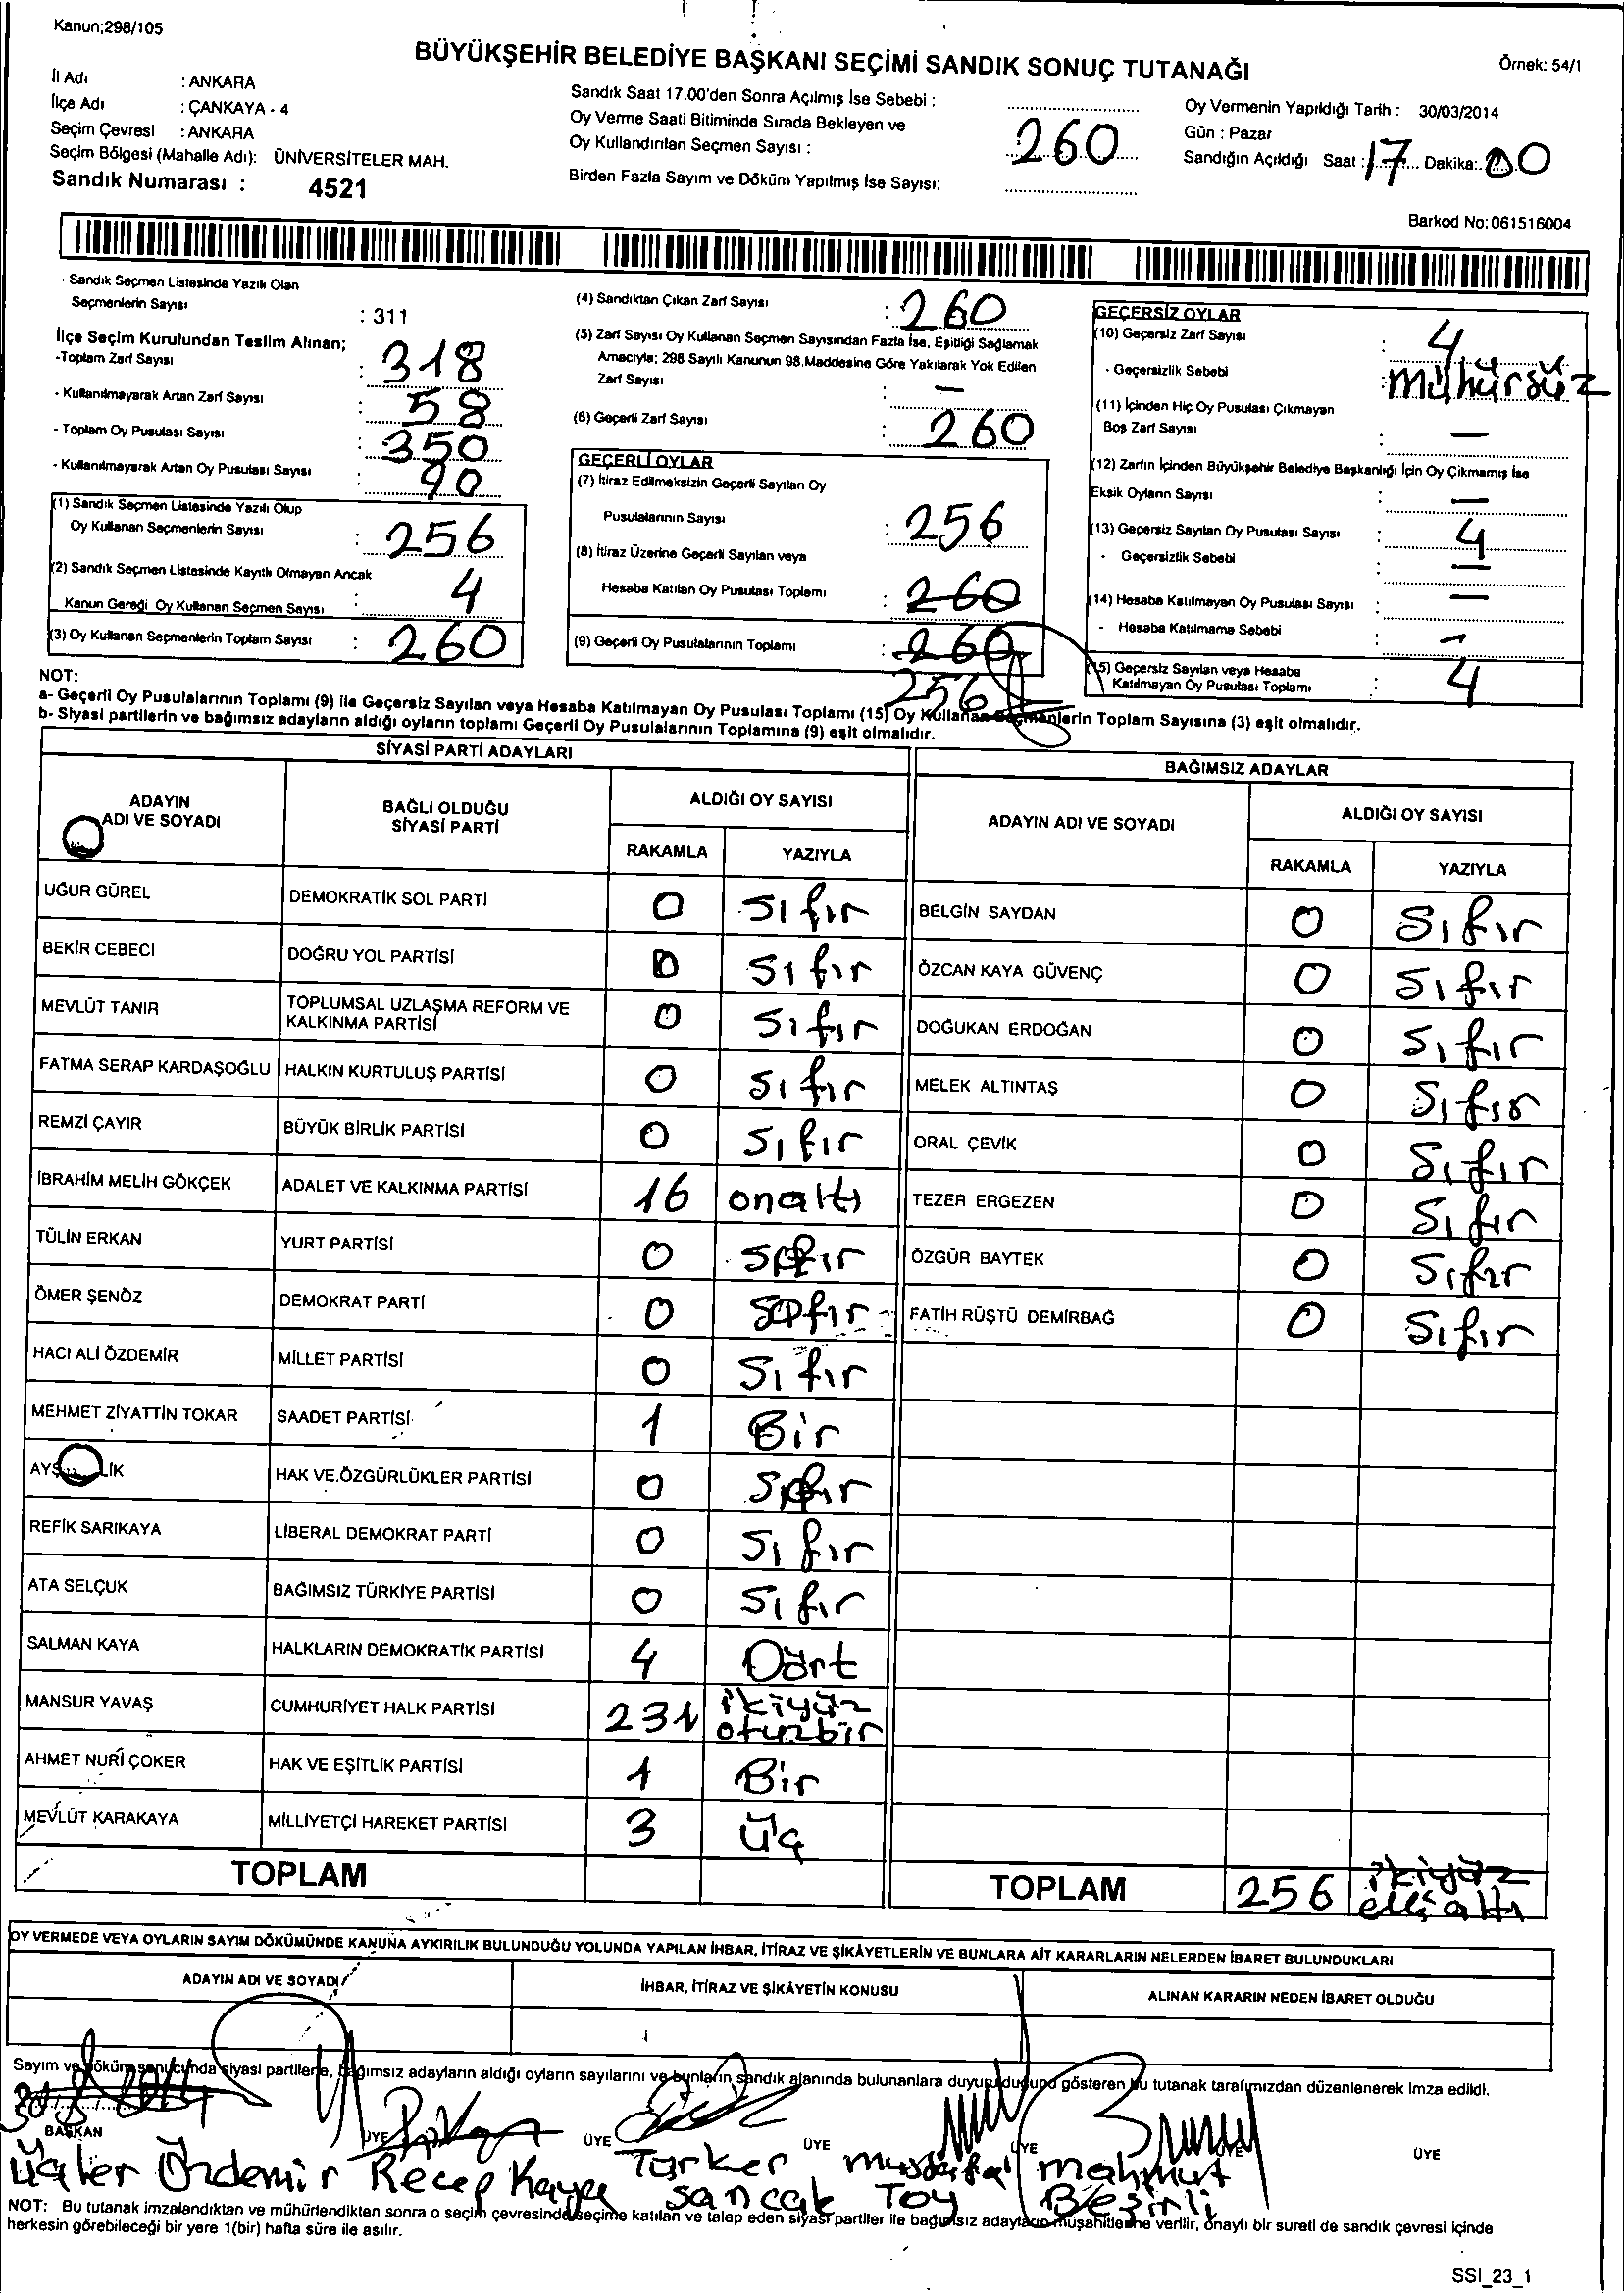 Kanun;298/105
BÜYÜKŞEHİR BELEDİYE BAŞKANI SEÇİMİ SANDIK SONUÇ TUTANAĞI
Örnek: 54/1
İl Adı : ANKARA
İlçe Adı : ÇANKAYA - 4
Seçim Çevresi : ANKARA
Seçim Bölgesi (Mahalle Adı): ÜNİVERSİTELER MAH.
Sandık Numarası : 4521
Sandık Saat 17.00'den Sonra Açılmış İse Sebebi :
Oy Verme Saati Bitiminde Sırada Bekleyen ve
Oy Kullandırılan Seçmen Sayısı : 260
Birden Fazla Sayım ve Döküm Yapılmış İse Sayısı:
Oy Vermenin Yapıldığı Tarih : 30/03/2014
Gün : Pazar
Sandığın Açıldığı Saat : 17 Dakika: 00
Barkod No: 061516004
- Sandık Seçmen Listesinde Yazılı Olan
Seçmenlerin Sayısı : 311
İlçe Seçim Kurulundan Teslim Alınan;
-Toplam Zarf Sayısı : 318
- Kullanılmayarak Artan Zarf Sayısı : 58
- Toplam Oy Pusulası Sayısı : 350
- Kullanılmayarak Artan Oy Pusulası Sayısı : 90
(1) Sandık Seçmen Listesinde Yazılı Olup
Oy Kullanan Seçmenlerin Sayısı : 256
(2) Sandık Seçmen Listesinde Kayıtlı Olmayan Ancak
Kanun Gereği Oy Kullanan Seçmen Sayısı : 4
(3) Oy Kullanan Seçmenlerin Toplam Sayısı : 260
(4) Sandıktan Çıkan Zarf Sayısı : 260
(5) Zarf Sayısı Oy Kullanan Seçmen Sayısından Fazla İse, Eşitliği Sağlamak
Amacıyla; 298 Sayılı Kanunun 98.Maddesine Göre Yakılarak Yok Edilen
Zarf Sayısı : -
(6) Geçerli Zarf Sayısı : 260
GEÇERLİ OYLAR
(7) İtiraz Edilmeksizin Geçerli Sayılan Oy
Pusulalarının Sayısı : 256
(8) İtiraz Üzerine Geçerli Sayılan veya
Hesaba Katılan Oy Pusulası Toplamı : 260
(9) Geçerli Oy Pusulalarının Toplamı : 260
256
GEÇERSİZ OYLAR
(10) Geçersiz Zarf Sayısı : 4
- Geçersizlik Sebebi : mühürsüz
(11) İçinden Hiç Oy Pusulası Çıkmayan
Boş Zarf Sayısı : -
(12) Zarfın İçinden Büyükşehir Belediye Başkanlığı İçin Oy Çıkmamış İse
Eksik Oyların Sayısı : -
(13) Geçersiz Sayılan Oy Pusulası Sayısı : 4
- Geçersizlik Sebebi : -
(14) Hesaba Katılmayan Oy Pusulası Sayısı : -
- Hesaba Katılmama Sebebi : -
(15) Geçersiz Sayılan veya Hesaba
Katılmayan Oy Pusulası Toplamı : 4
NOT:
a- Geçerli Oy Pusulalarının Toplamı (9) ile Geçersiz Sayılan veya Hesaba Katılmayan Oy Pusulası Toplamı (15) Oy Kullanan Seçmenlerin Toplam Sayısına (3) eşit olmalıdır.
b- Siyasi partilerin ve bağımsız adayların aldığı oyların toplamı Geçerli Oy Pusulalarının Toplamına (9) eşit olmalıdır.
SİYASİ PARTİ ADAYLARI
ADAYIN ADI VE SOYADI BAĞLI OLDUĞU SİYASİ PARTİ ALDIĞI OY SAYISI
RAKAMLA YAZIYLA
UĞUR GÜREL DEMOKRATİK SOL PARTİ 0 Sıfır
BEKİR CEBECİ DOĞRU YOL PARTİSİ 0 Sıfır
MEVLÜT TANIR TOPLUMSAL UZLAŞMA REFORM VE KALKINMA PARTİSİ 0 Sıfır
FATMA SERAP KARDAŞOĞLU HALKIN KURTULUŞ PARTİSİ 0 Sıfır
REMZİ ÇAYIR BÜYÜK BİRLİK PARTİSİ 0 Sıfır
İBRAHİM MELİH GÖKÇEK ADALET VE KALKINMA PARTİSİ 16 onaltı
TÜLİN ERKAN YURT PARTİSİ 0 Sıfır
ÖMER ŞENÖZ DEMOKRAT PARTİ 0 Sıfır
HACI ALİ ÖZDEMİR MİLLET PARTİSİ 0 Sıfır
MEHMET ZİYATTİN TOKAR SAADET PARTİSİ 1 Bir
HAK VE ÖZGÜRLÜKLER PARTİSİ 0 Sıfır
REFİK SARIKAYA LİBERAL DEMOKRAT PARTİ 0 Sıfır
ATA SELÇUK BAĞIMSIZ TÜRKİYE PARTİSİ 0 Sıfır
SALMAN KAYA HALKLARIN DEMOKRATİK PARTİSİ 4 Dört
MANSUR YAVAŞ CUMHURİYET HALK PARTİSİ 231 ikiyüz otuzbir
AHMET NURİ ÇOKER HAK VE EŞİTLİK PARTİSİ 1 Bir
MEVLÜT KARAKAYA MİLLİYETÇİ HAREKET PARTİSİ 3 üç
TOPLAM
BAĞIMSIZ ADAYLAR
ADAYIN ADI VE SOYADI ALDIĞI OY SAYISI
RAKAMLA YAZIYLA
BELGİN SAYDAN 0 Sıfır
ÖZCAN KAYA GÜVENÇ 0 Sıfır
DOĞUKAN ERDOĞAN 0 Sıfır
MELEK ALTINTAŞ 0 Sıfır
ORAL ÇEVİK 0 Sıfır
TEZER ERGEZEN 0 Sıfır
ÖZGÜR BAYTEK 0 Sıfır
FATİH RÜŞTÜ DEMİRBAĞ 0 Sıfır
TOPLAM 256 ikiyüz elli altı
OY VERMEDE VEYA OYLARIN SAYIM DÖKÜMÜNDE KANUNA AYKIRILIK BULUNDUĞU YOLUNDA YAPILAN İHBAR, İTİRAZ VE ŞİKÂYETLERİN VE BUNLARA AİT KARARLARIN NELERDEN İBARET BULUNDUKLARI
ADAYIN ADI VE SOYADI İHBAR, İTİRAZ VE ŞİKÂYETİN KONUSU ALINAN KARARIN NEDEN İBARET OLDUĞU
Sayım ve döküm sonucunda siyasi partilere, bağımsız adayların aldığı oyların sayılarını ve bunların sandık alanında bulunanlara duyurulduğunu gösteren bu tutanak tarafımızdan düzenlenerek imza edildi.
BAŞKAN ÜYE ÜYE ÜYE ÜYE ÜYE ÜYE
Üçler Özdemir Recep Kaya Türker Sancak Mustafa Toy Mahmut Beşirli
NOT: Bu tutanak imzalandıktan ve mühürlendikten sonra o seçim çevresinde seçime katılan ve talep eden siyasi partiler ile bağımsız adayların müşahitlerine verilir, onaylı bir sureti de sandık çevresi içinde
herkesin görebileceği bir yere 1(bir) hafta süre ile asılır.
SSI_23_1